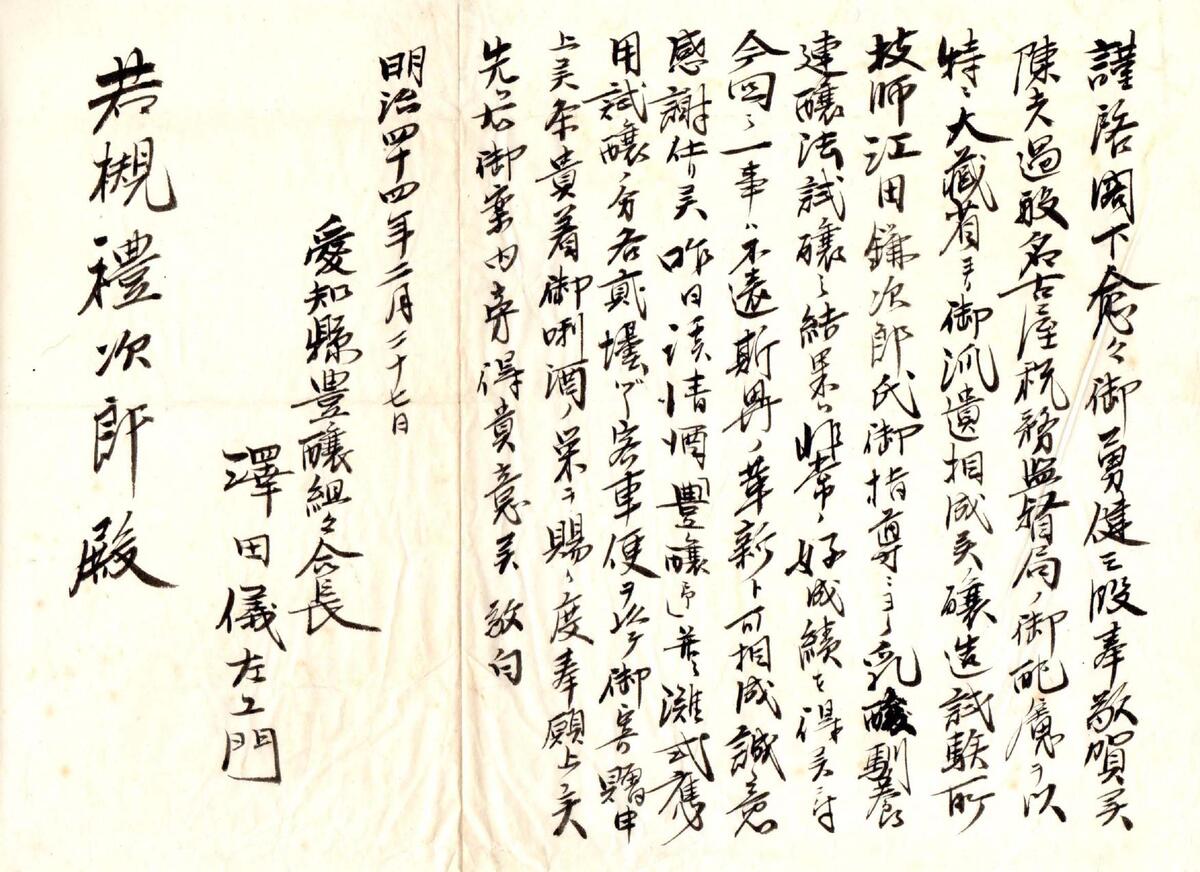 謹啓閣下愈々御勇健ニ段奉敬賀候
陳者過般名古屋税務監督局ノ御配慮ヲ以
特ニ大藏省ヨリ御派遣相成候醸造試験所
技師江田鎌次郎氏御指導ニヨリ乳酸馴養
連醸法試醸之結果ハ非常ノ好成績を得候付
今回之一事ハ不遠斯界ノ革新ト可相成誠ニ
感謝仕リ候昨日該清酒豊醸並ニ灘式
用試醸ノ分各貳壜ヅヽ客車便ヲ以テ御寄贈申
上候条貴着御唎酒ノ栄ヲ賜り度奉願上候
先ハ御案内旁得貴意候 敬白
明治四十四年二月二十七日
愛知縣豊醸組々合長
澤田儀左エ門
若槻禮次郎殿